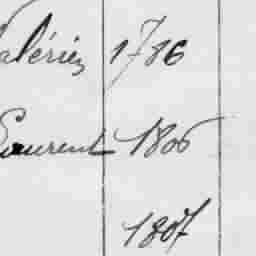 Valérien 1786
Laurent 1806
1807